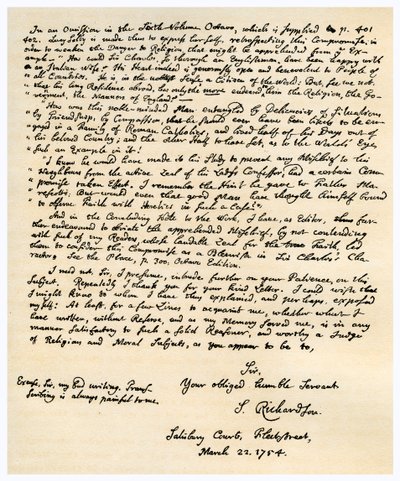 In an Omission in the Sixth Volume, Octavo, which is supplied p. 401
402. Lucy Selby is made thus to express herself, respecting this Compromise, in
order to weaken the Danger to Religion, that might be apprehended from the Ex-
ample — "How could Sir Charles, so thorough an Englishman, have been happy with
an Italian Wife? His Heart indeed is generously open and benevolent to People of
all Countries. He is in the noblest Sense a Citizen of the World: But, see we not,
that his long Residence abroad, has only the more endeared him the Religion, the Go-
vernment, the Manners of England?
"How was this noble-minded Man entangled by Delicacies of Situation
by Friendship, by Compassion, that he should ever have been likely to be en-
gaged in a Family of Roman Catholics, and lived half of his Days out of
his beloved Country; and the other Half to have set, as to the World's Eye,
such an Example in it!
"I know he would have made it his Study to prevent any Mischief to his
Neighbours from the active Zeal of his Lady's Confessor, had a certain Com-
promise taken Effect. I remember the Hint he gave to Father Ma-
rescotti; But would even that good Man have thought himself bound
to observe Faith with Heretics in such a Case?"
And in the Concluding Note to the Work, I have, as Editor, thus fur-
ther endeavoured to obviate the apprehended Mischief, by not contending
with such of my Readers, whose laudable Zeal for the true Faith, led
them to consider this Compromise as a Blemish in Sir Charles's Cha-
racter. See the Place, p. 300, Octavo Edition.
I need not, Sir, I presume, intrude further on your Patience, on this
Subject. Repeatedly I thank you for your kind Letter. I could wish that
I might know to whom I have thus explained, and perhaps, exposed
myself: At least, for a few Lines to acquaint me, whether what I
have written, without Reserve, and as my Memory served me, is in any
manner Satisfactory to such a solid Reasoner, and worthy a Judge
of Religious and Moral Subjects, as you appear to be, to,
Sir,
Your obliged humble Servant
S. Richardson.
Excuse, Sir, my bad writing. Tran-
scribing is always painful to me.
Salisbury Court, Fleetstreet,
March 22. 1754.